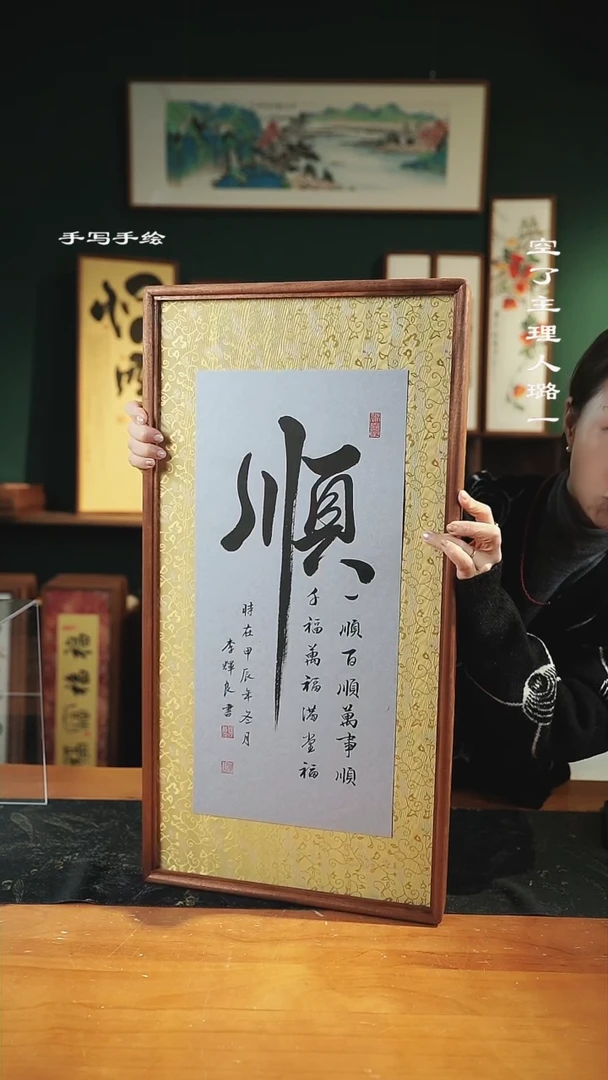 手写手绘
空了主理人璐一
順
一順百順萬事順
千福萬福满堂福
時在甲辰年冬月
李輝良書
福